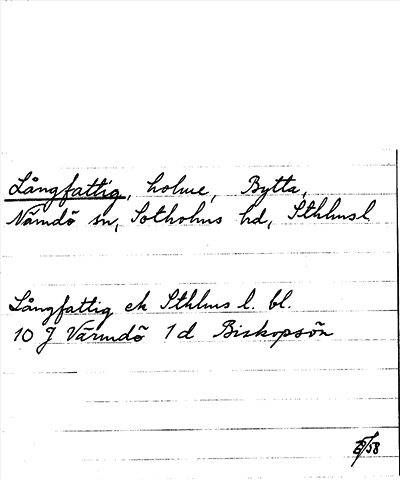 Långfattig, holme, Bytta,
Nämdö sn, Sotholms hd, Sthlmsl
Långfattig ek Sthlms l. bl.
10 J Värmdö 1d Biskopsön
/58